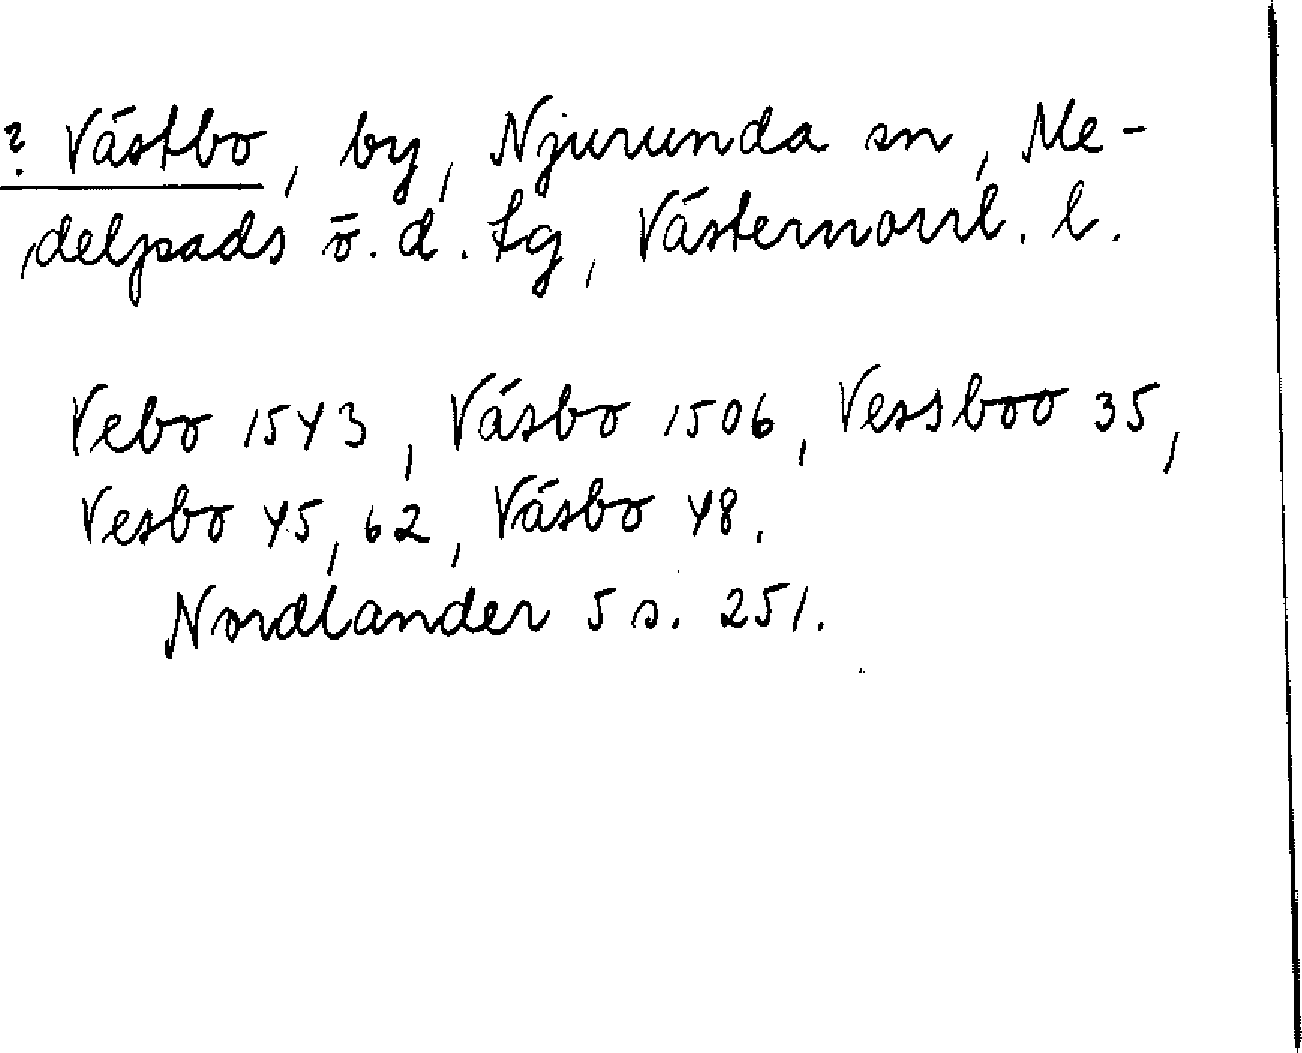 ? Västbo, by, Njurunda sn, Me-
delpads ö. d. tg, Västernorrl. l.
Vebo 1543, Väsbo 1506, Vessboo 35,
Vesbo 45, 62, Väsbo 48.
Nordlander 5 s. 251.